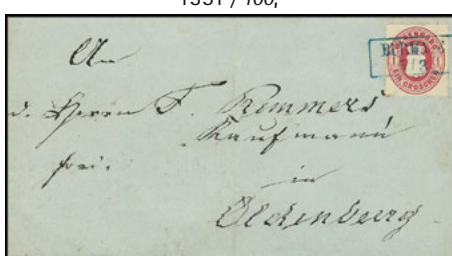 1551 / 100,
An
d. Herrn F. Remmers
Kaufmann
frei.
in
Oldenburg.
EIN GROSCHEN